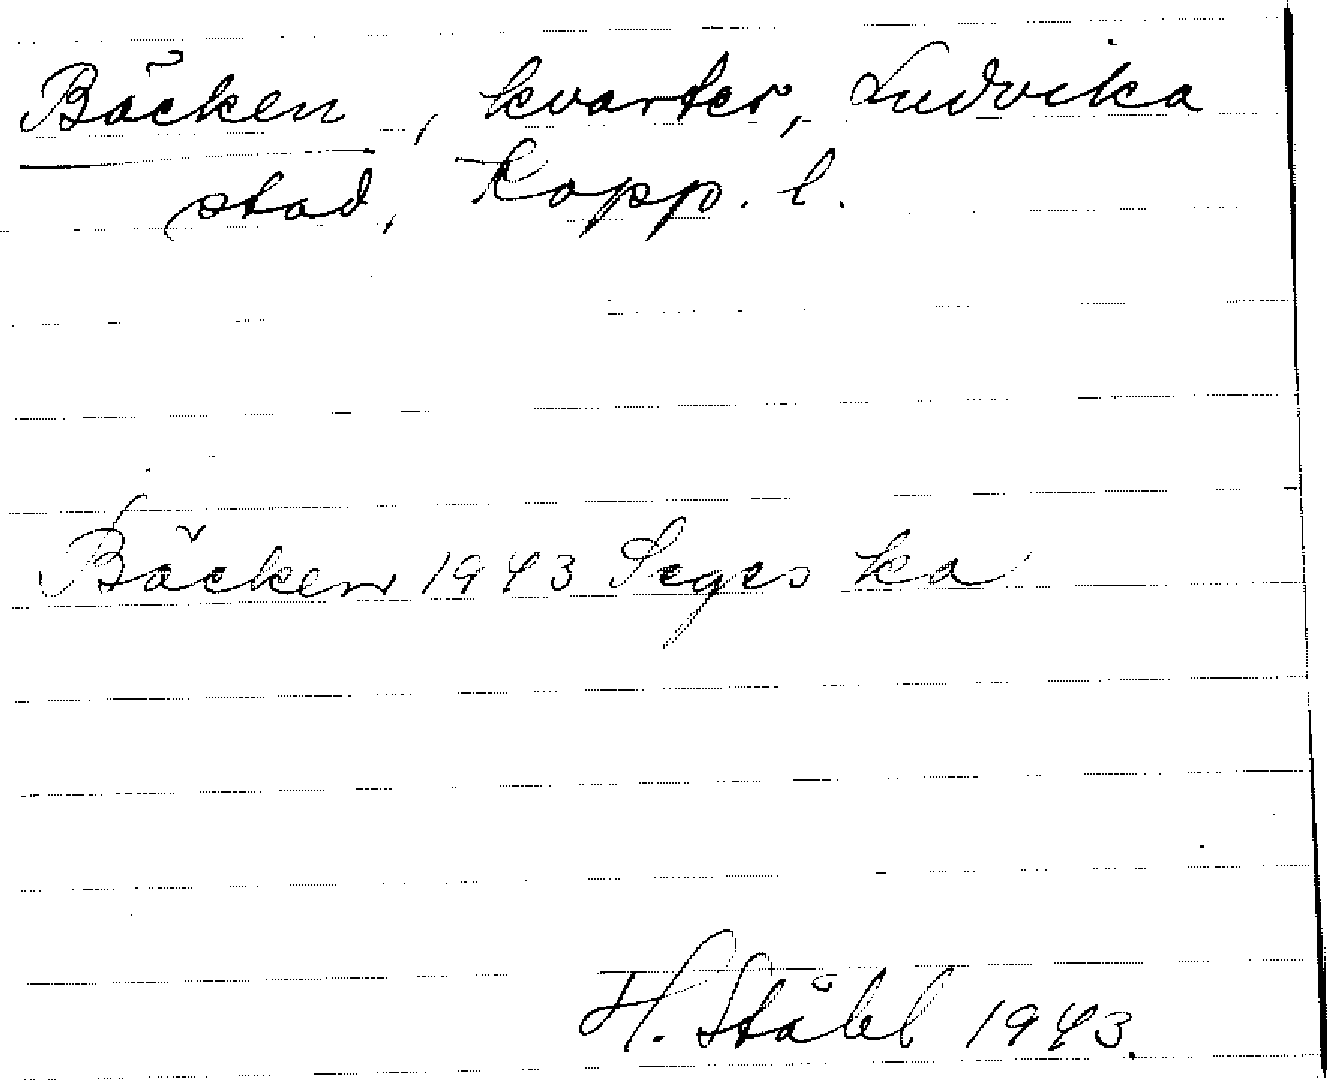 Bäcken, kvarter, Ludvika
stad, Kopp. l.
Bäcken 1943 Seges ka
H. Ståhl 1943.